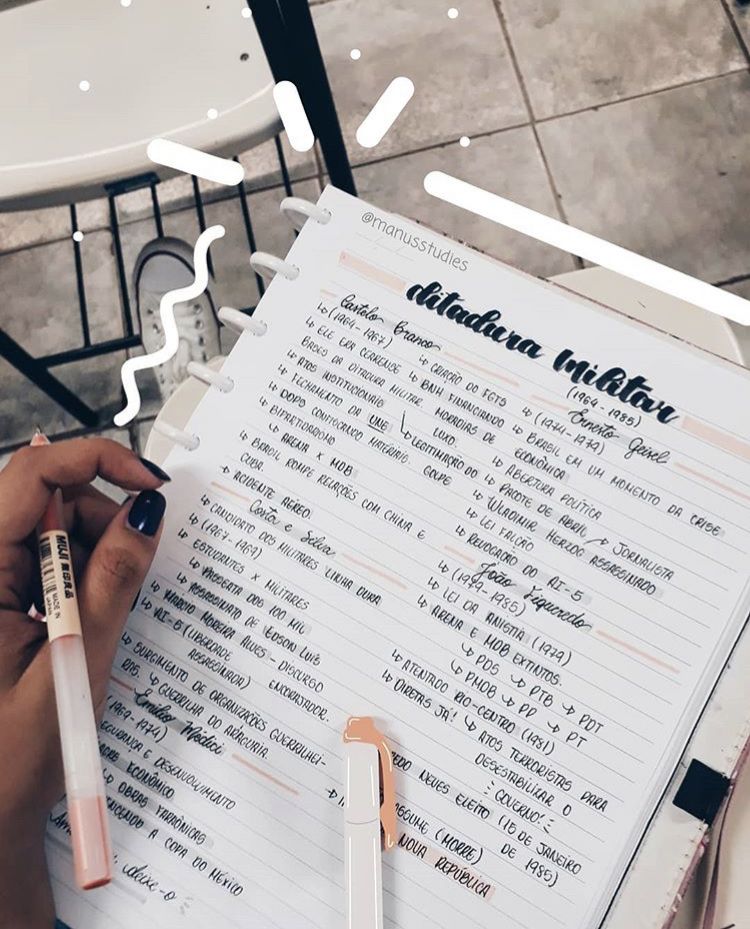 @manusstudies
ditadura militar
(1964-1985)
Castelo Branco
↳ (1964-1967)
↳ ELE ERA CEARENSE
BASES DA DITADURA MILITAR.
↳ ATOS INSTITUCIONAIS
↳ FECHAMENTO DA UNE
DOPS CONFISCANDO MATERIAIS.
↳ BIPARTIDARISMO
↳ ARENA X MDB
↳ BRASIL ROMPE RELAÇÕES COM CHINA E
CUBA.
↳ ACIDENTE AÉREO.
↳ CRIAÇÃO DO FGTS
↳ BNH FINANCIANDO
MORADIAS DE
LUXO.
↳ LEGITIMAÇÃO DO
GOLPE
Costa e Silva
↳ CANDIDATO DOS MILITARES "LINHA DURA
↳ (1967-1969)
↳ ESTUDANTES X MILITARES
↳ PASSEATA DOS 100 MIL
↳ ASSASSINATO DE EDSON LUIS
↳ MARCIO MOREIRA ALVES - DISCURSO
ENCORAJADOR.
↳ AI-5 (LIBERDADE
ASSASSINADA)
↳ SURGIMENTO DE ORGANIZAÇÕES GUERRILHEI-
RAS. ↳ GUERRILHA DO ARAGUAIA.
Emílio Médici
1969-1974)
SEGURANÇA E DESENVOLVIMENTO
ECONÔMICO
↳ OBRAS FARAÔNICAS
A COPA DO MÉXICO
deixe-o
Ernesto Geisel
↳ (1974-1979)
↳ BRASIL EM UM MOMENTO DA CRISE
ECONÔMICA
↳ ABERTURA POLÍTICA
↳ PACOTE DE ABRIL
JORNALISTA
↳ WLADIMIR HERZOG ASSASSINADO
↳ LEI FALCÃO
↳ REVOGAÇÃO DO AI-5
João Figueredo
↳ (1979-1985)
↳ LEI DA ANISTIA (1979)
↳ ARENA E MDB EXTINTOS.
↳ PDS ↳ PTB ↳ PDT
↳ PMDB ↳ PP ↳ PT
↳ ATENTADO RIO-CENTRO (1981)
↳ DIRETAS JÁ! ↳ ATOS TERRORISTAS PARA
DESESTABILIZAR O
GOVERNO!
NEVES ELEITO (15 DE JANEIRO
DE 1985)
ASSUME (MORRE)
NOVA REPÚBLICA
MUJI 無印良品
MADE IN
JAPAN